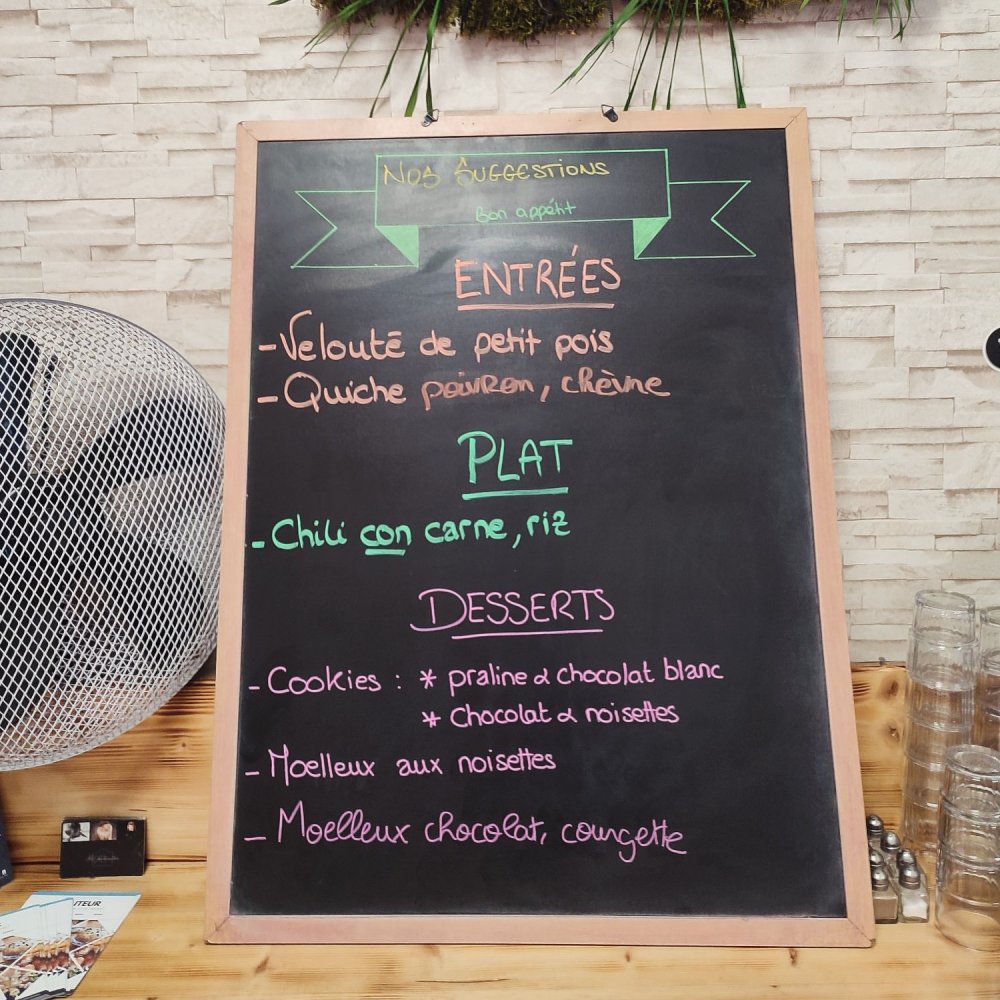 Nos Suggestions
Bon appétit
ENTRÉES
- Velouté de petit pois
- Quiche poivron, chèvre
PLAT
- Chili con carne, riz
DESSERTS
- Cookies : * praline & chocolat blanc
* Chocolat & noisettes
- Moelleux aux noisettes
- Moelleux chocolat, courgette